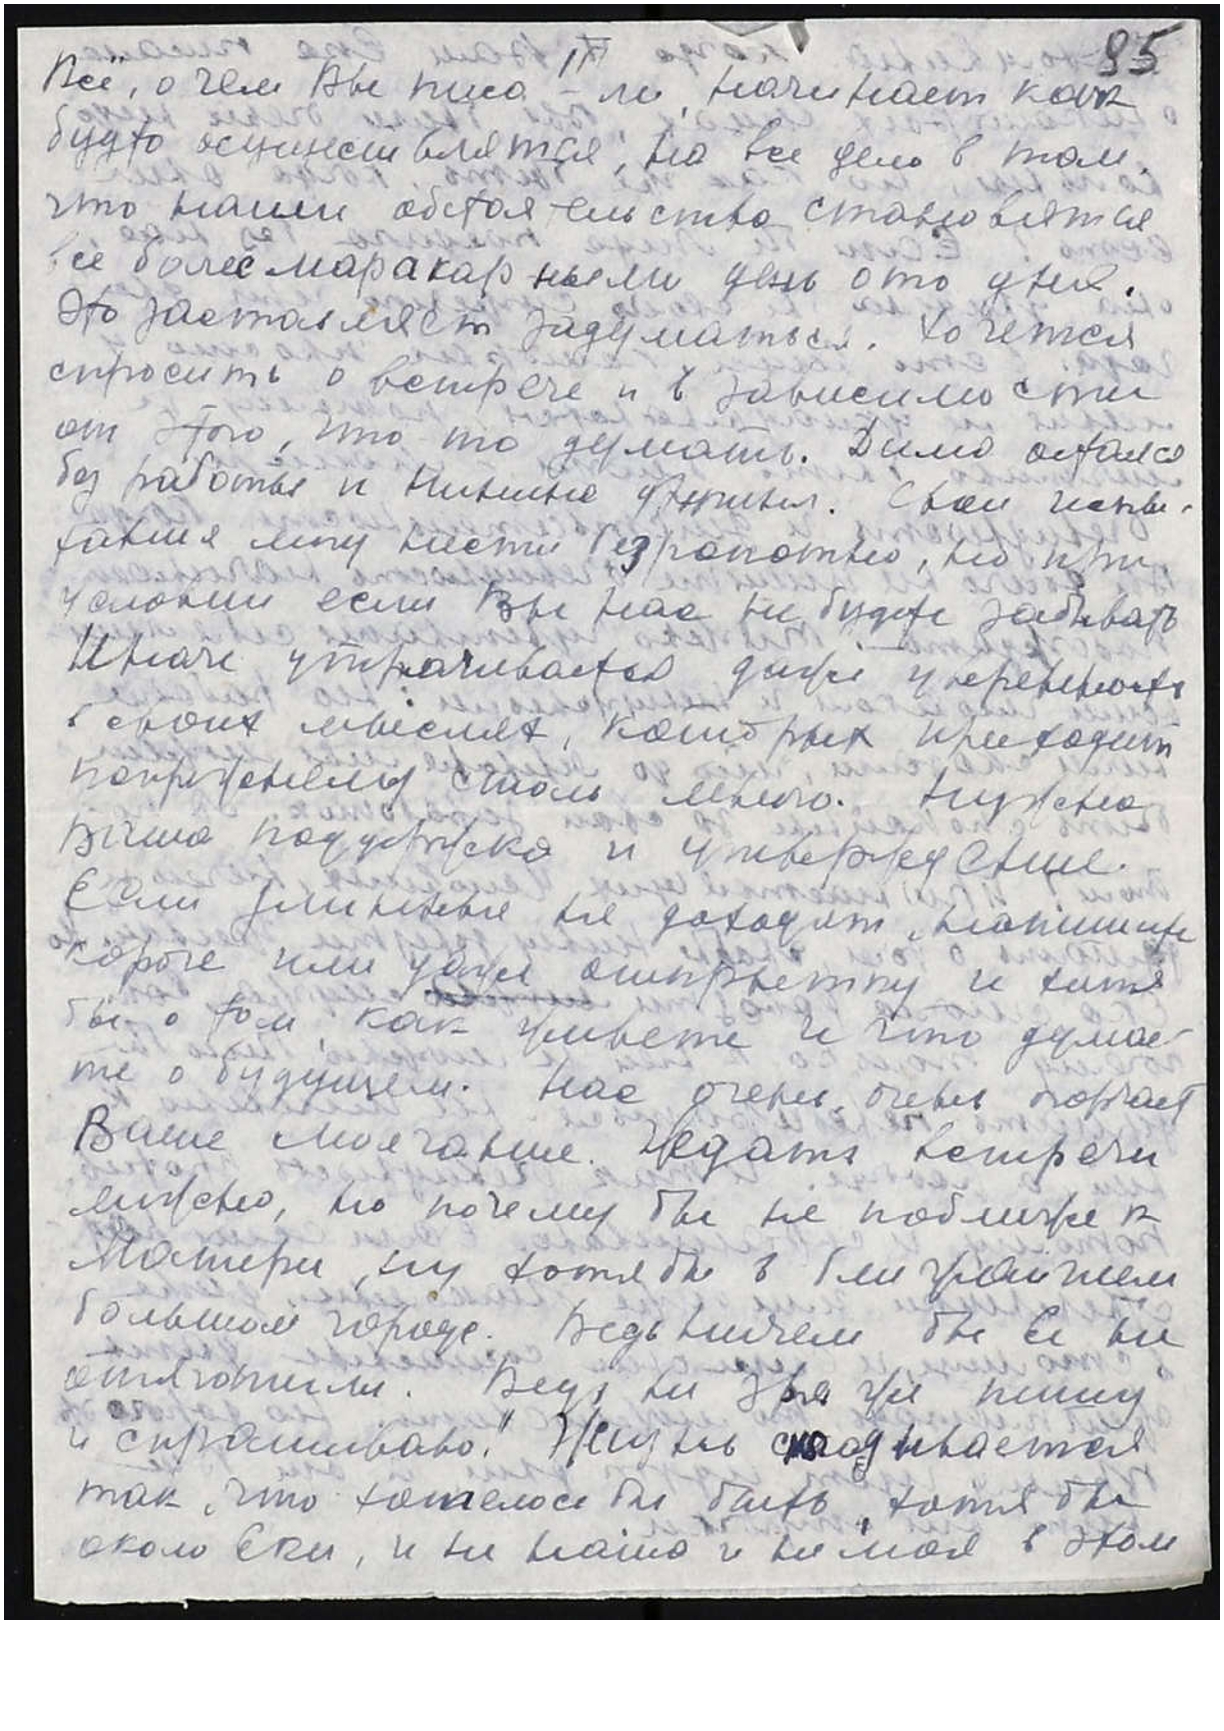 95
III
Всё, о чем Вы писа-ли, начинает как
будто осуществляться, но все дело в том,
что наши обстоятельства становятся
все более маракарными день ото дня.
Это заставляет задуматься. Хочется
спросить о встрече и в зависимости
от этого, что то думать. Дима остался
без работы и Нинина фирма. Свои испы-
тания могу нести безропотно, но при
условии если Вы нас не будете забывать
Иначе утрачивается даже уверенность
в своих мыслях, которых приходит
по-прежнему столь много. Нужно
Ваша поддержка и утверждение.
Если длинные не доходят, напишите
короче или даже открытку и хотя
бы о том, как живете и что думае-
те о будущем. Нас очень, очень торчает
Ваше молчание. Ждать встречи
можно, но почему бы не поближе к
Матери, ну хотя бы в ближайшем
большом городе. Ведь ничем бы Ее не
отяготили. Ведь не зря же пишу
и спрашиваю." Жизнь складывается
так, что хотелось бы быть, хотя бы
около Ели, и не наша и не моя в этом